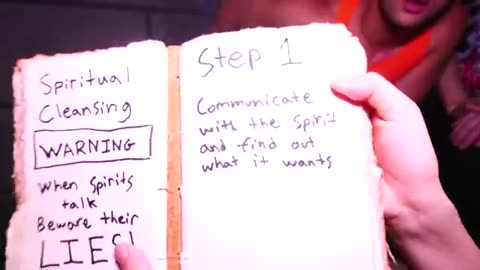 Spiritual
Cleansing
WARNING
When spirits
talk
Beware their
LIES!
Step 1
Communicate
with the spirit
and find out
what it wants